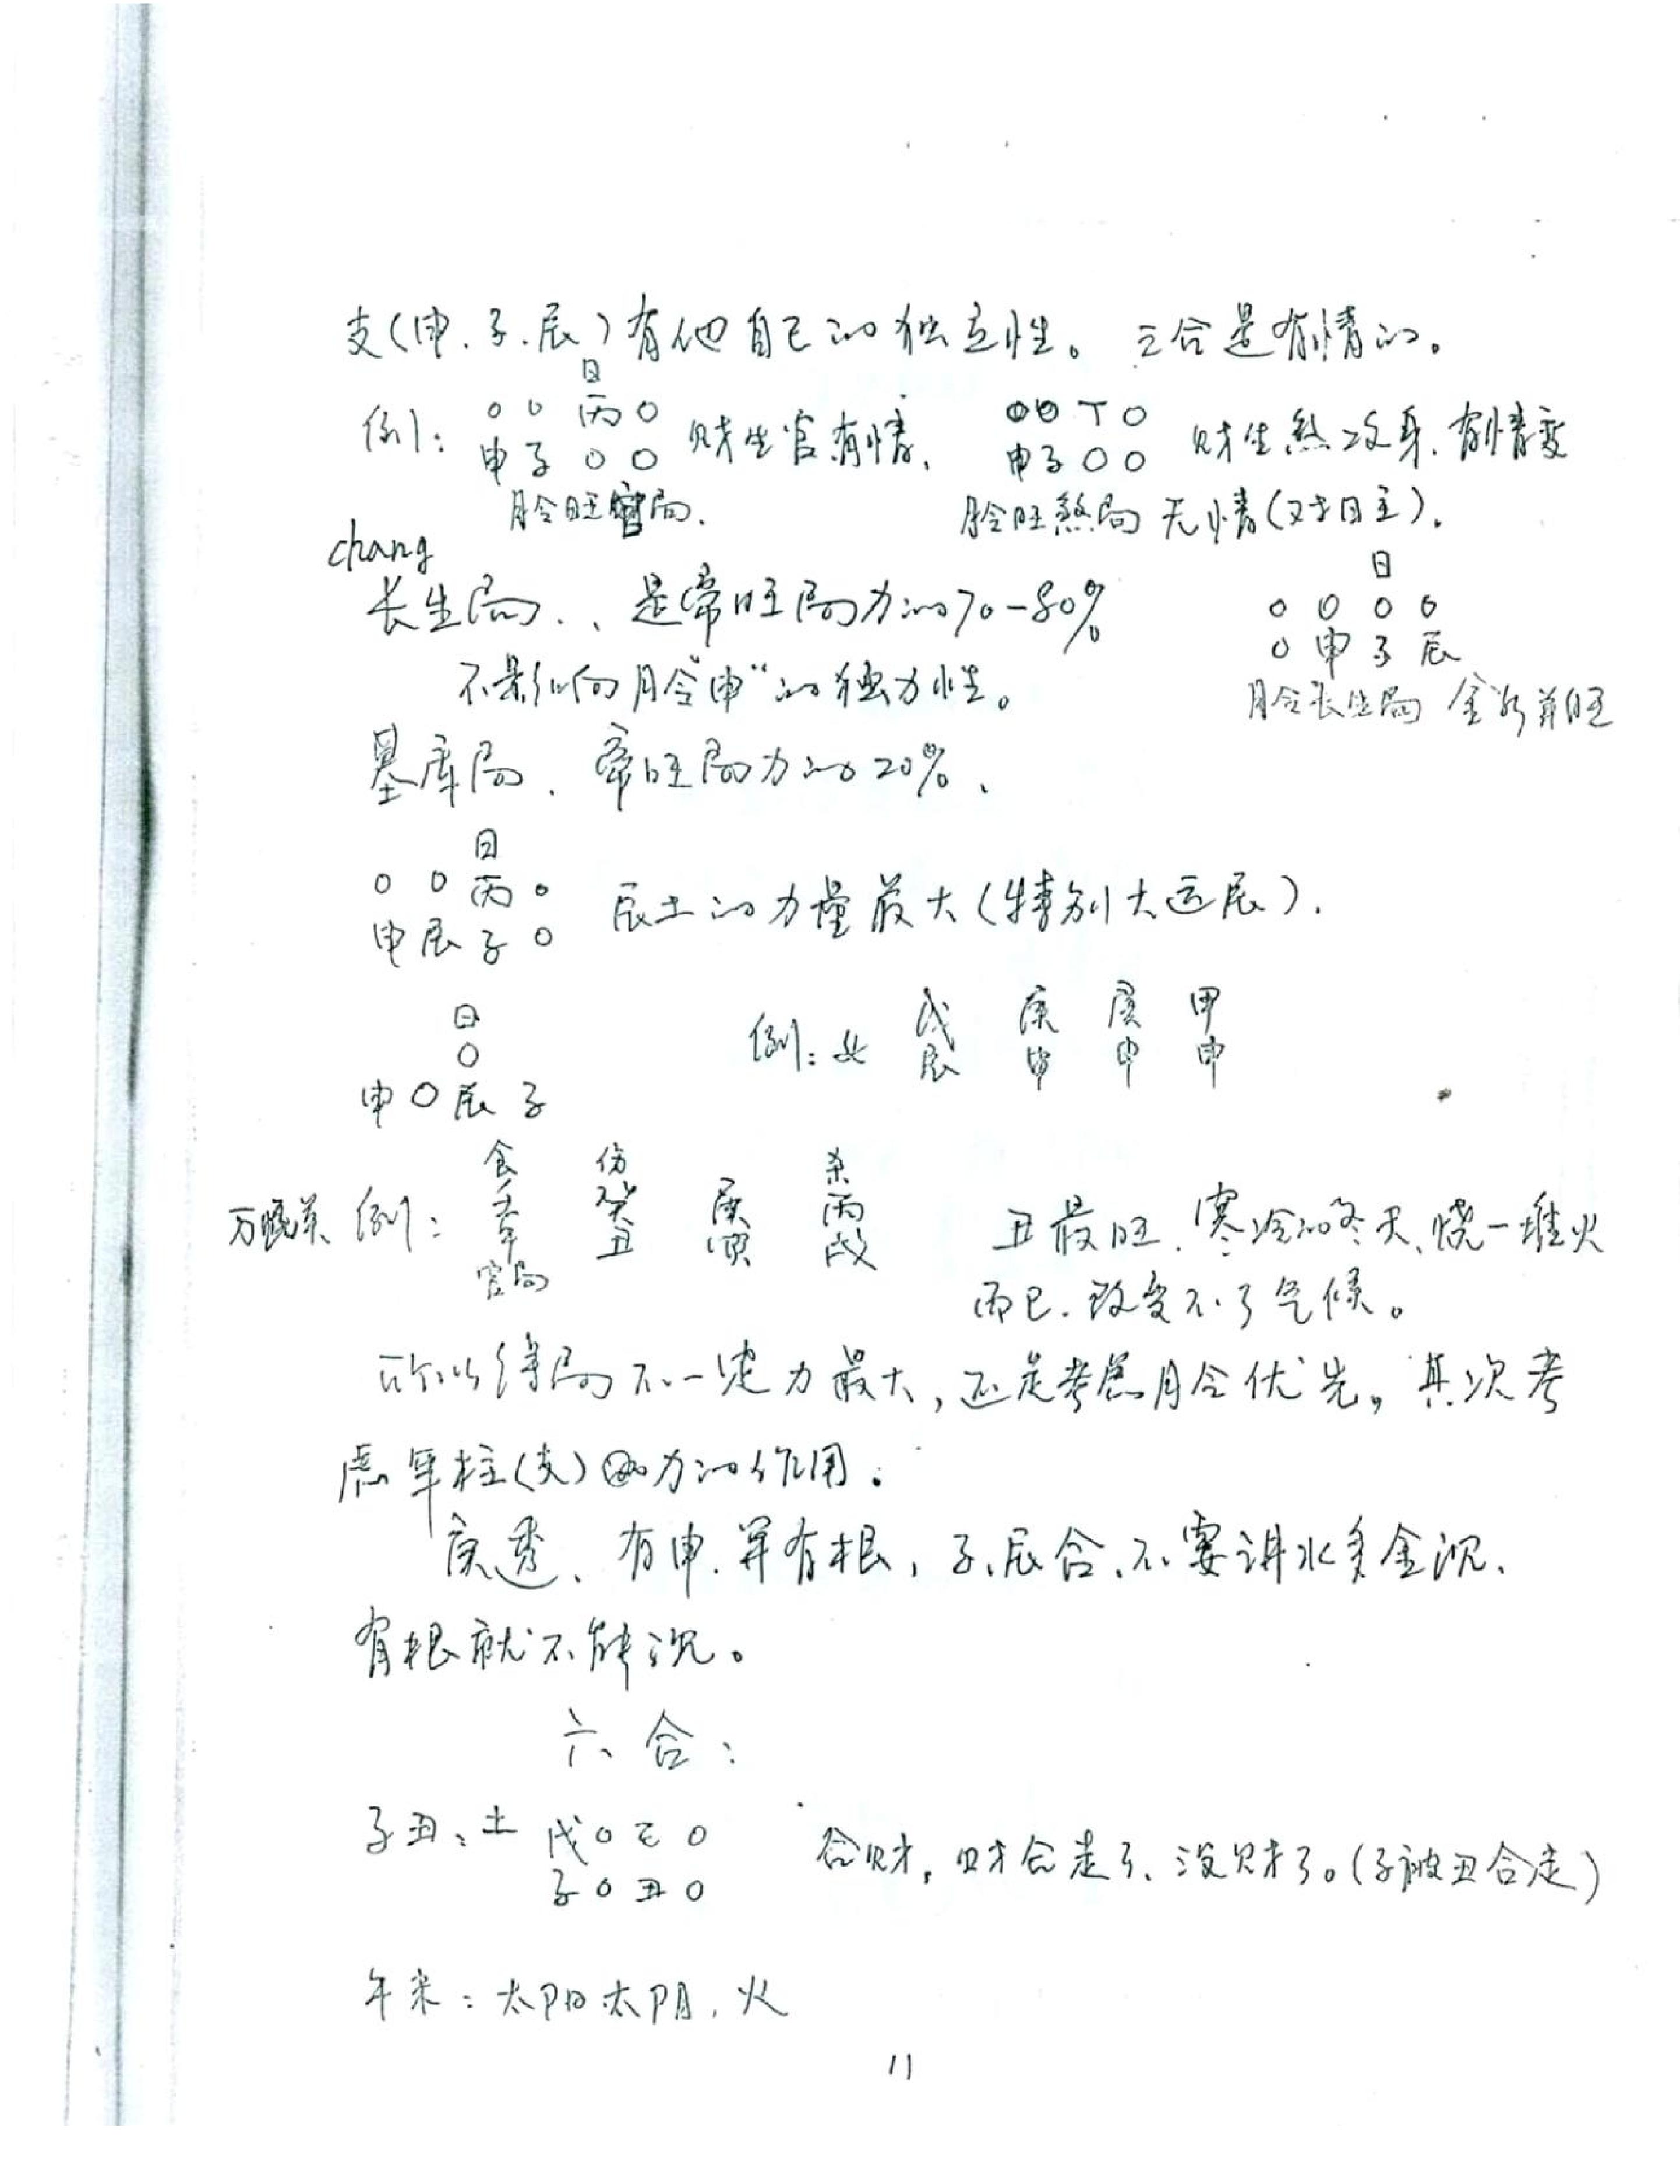 支(申.子.辰)有他自己的独立性。三合是有情的。
日
例: 0 0 丙 0 财生官有情、 0 0 丁 0 财生煞攻身.有情变
申 子 0 0 申 子 0 0
月令旺官局. 月令旺煞局 无情(对日主).
chang
长生局.、是帝旺局力的70-80%
日
0 0 0 0
不影响月令"申"的独力性。
0 申 子 辰
月令长生局 金水并旺
墓库局、帝旺局力的20%、
日
0 0 丙 0 辰土的力量最大(特别大运辰).
申 辰 子 0
日
0
申 0 辰 子
例:女 戊 庚 庚 甲
辰 申 申 申
食 伤 杀
例: 壬 癸 庚 丙 丑最旺.寒冷的冬天、烧一堆火
午 丑 寅 戌
官局 而已.改变不了气候。
所以得局不一定力最大,还是考虑月令优先。其次考
虑年柱(支)力的作用。
庚透、有申.算有根,子、辰合、不要讲水多金沉、
有根就不能沉。
六合:
子丑:土 戊 0 己 0 合财,财合走了、没财了。(子被丑合走)
子 0 丑 0
午未:太阳太阴,火
11